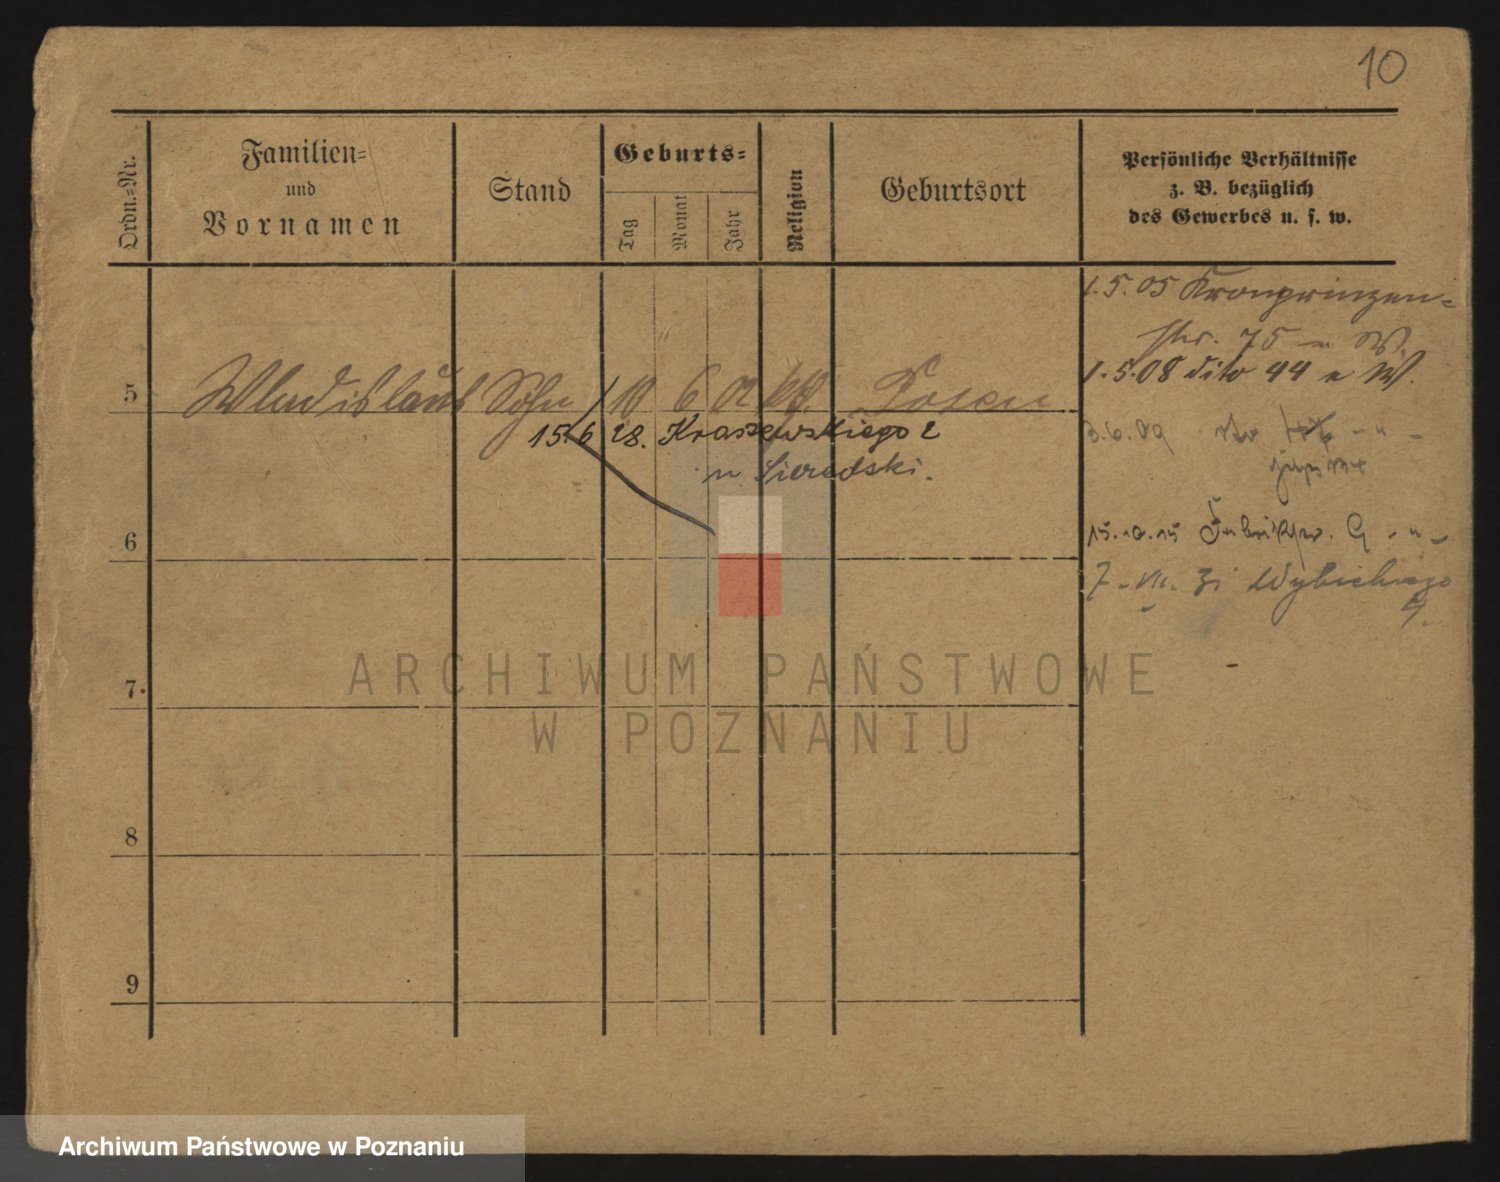 10
Ordn.=Nr.
Familien=
und
Vornamen
Stand
Geburts=
Tag
Monat
Jahr
Religion
Geburtsort
Persönliche Verhältnisse
z. B. bezüglich
des Gewerbes u. s. w.
1.5.05 Kronprinzen=
str. 75 W.
1.5.08 dito 44 W.
5 Wladislaus Sohn 10 6 Posen
15.6 28. Kraszewskiego 2
u Sieradski.
3.6.09
6
15.10.15 Fabrikstr.
7. VII. Wybickiego
9.
7.
8
9
ARCHIWUM PAŃSTWOWE
W POZNANIU
Archiwum Państwowe w Poznaniu